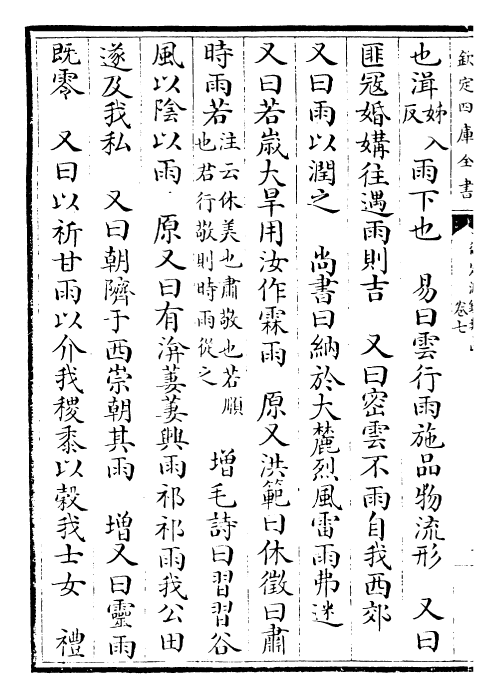 欽定四庫全書
卷七
也湒姊入反雨下也　易曰雲行雨施品物流形　又曰
匪冦婚媾往遇雨則吉　又曰密雲不雨自我西郊
又曰雨以潤之　尚書曰納於大麓烈風雷雨弗迷
又曰若嵗大旱用汝作霖雨　原又洪範曰休徵曰肅
時雨若注云休美也肅敬也若順也君行敬則時雨從之　增毛詩曰習習谷
風以陰以雨　原又曰有渰萋萋興雨祁祁雨我公田
遂及我私　又曰朝隮于西崇朝其雨　增又曰靈雨
既零　又曰以祈甘雨以介我稷黍以穀我士女　禮